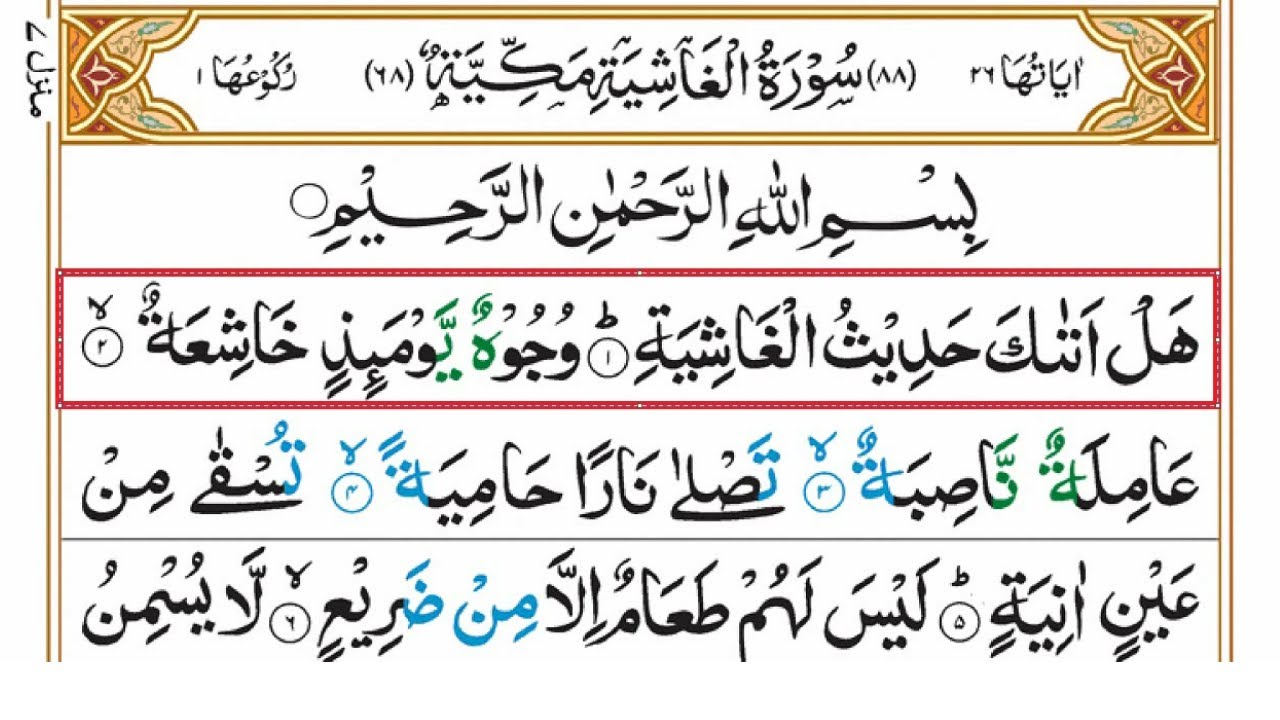 اٰيَاتُهَا ٢٦ (٨٨) سُوْرَةُ الْغَاشِيَةِ مَكِّيَّةٌ (٦٨) رُكُوْعُهَا ١
منزل ٧
بِسْمِ اللّٰهِ الرَّحْمٰنِ الرَّحِيْمِ
هَلْ اَتٰىكَ حَدِيْثُ الْغَاشِيَةِ ؕ﴿۱﴾ وُجُوْهٌ يَّوْمَئِذٍ خَاشِعَةٌ ۙ﴿۲﴾
عَامِلَةٌ نَّاصِبَةٌ ۙ﴿۳﴾ تَصْلٰى نَارًا حَامِيَةً ۙ﴿۴﴾ تُسْقٰى مِنْ
عَيْنٍ اٰنِيَةٍ ؕ﴿۵﴾ لَيْسَ لَهُمْ طَعَامٌ اِلَّا مِنْ ضَرِيْعٍ ۙ﴿۶﴾ لَّا يُسْمِنُ